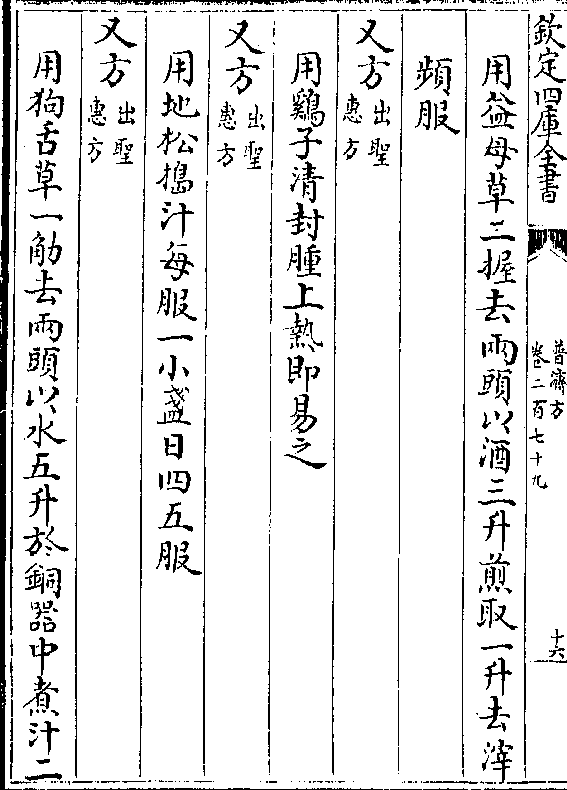 欽定四庫全書
普濟方
卷二百七十九
十六
用益母草三握去兩頭以酒三升煎取一升去滓
頻服
又方出聖惠方
用鷄子清封腫上熱即易之
又方出聖惠方
用地松搗汁每服一小盞日四五服
又方出聖惠方
用狗舌草一觔去兩頭以水五升於銅器中煮汁二